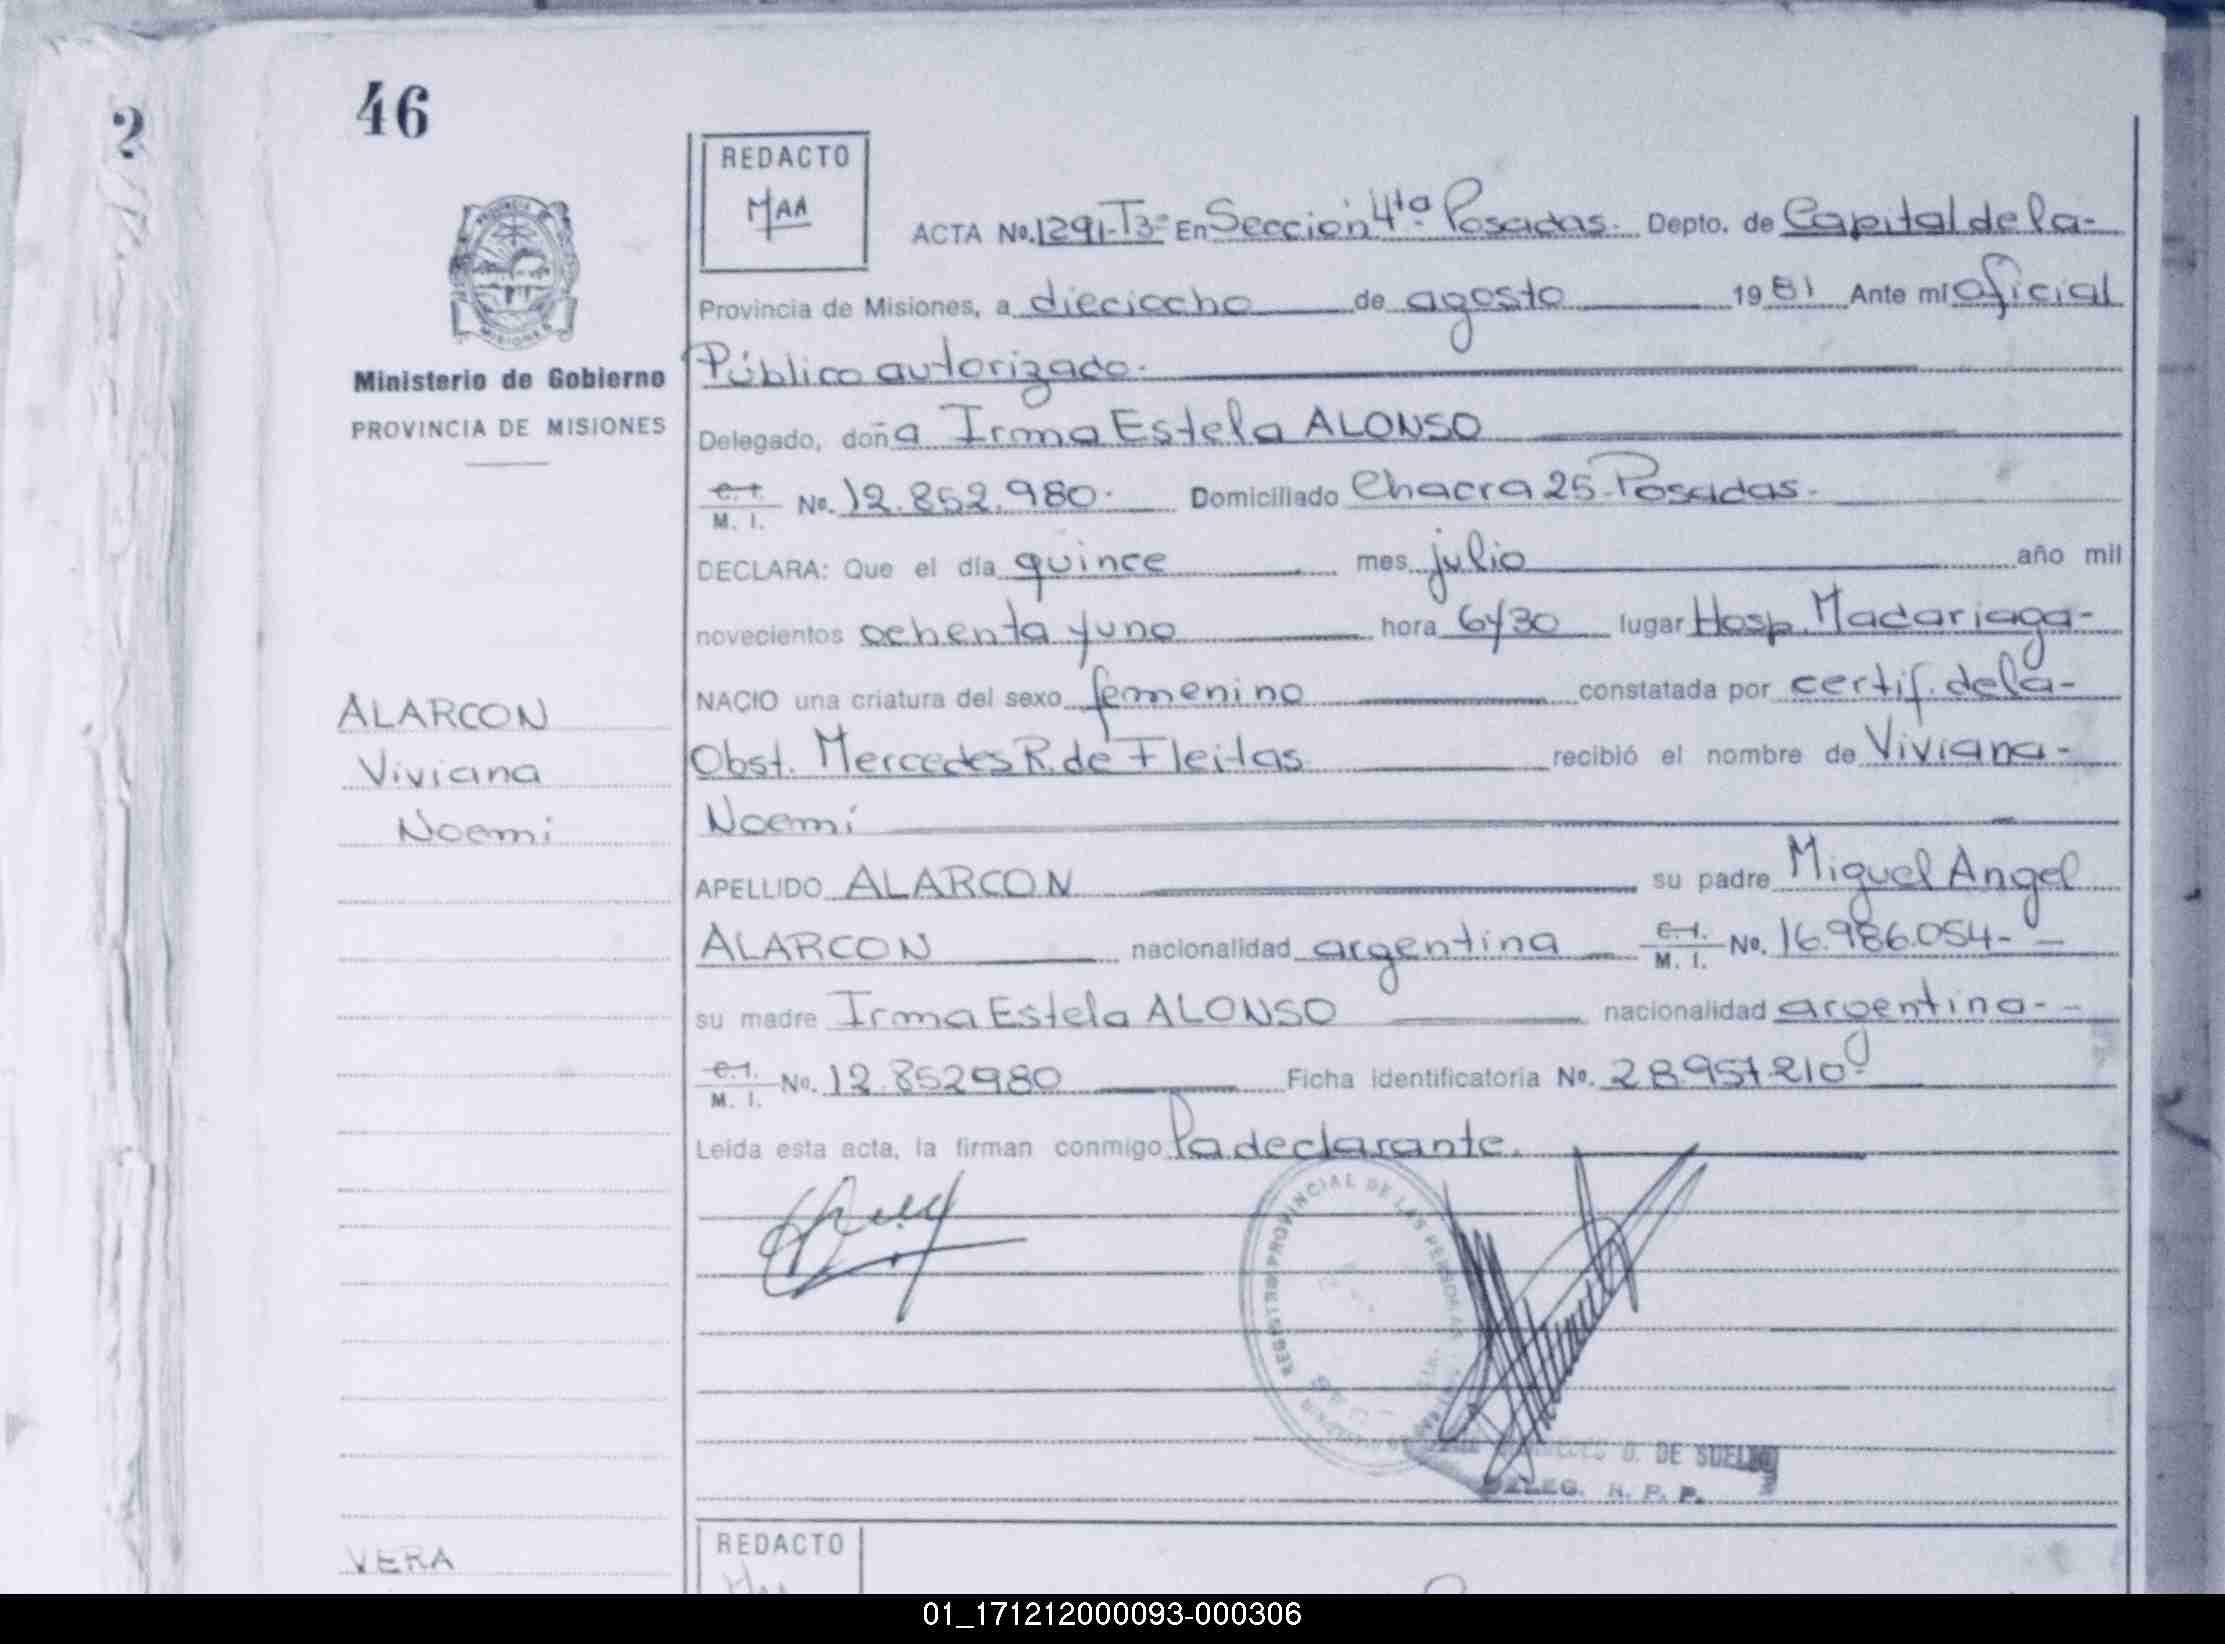 2
46
REDACTO
MAA
ACTA No. 1291-T3º En Sección 4ta. Posadas. Depto. de Capital de la-
Provincia de Misiones, a dieciocho de agosto 1981 Ante mí oficial
Público autorizado.
Ministerio de Gobierno
PROVINCIA DE MISIONES
Delegado, doña Irma Estela ALONSO
C. I.
M. I. No. 12.852.980. Domiciliado Chacra 25-Posadas.
DECLARA: Que el día quince mes julio año mil
novecientos ochenta y uno hora 6y30 lugar Hosp. Madariaga-
NACIO una criatura del sexo femenino constatada por certif. de la-
Obst. Mercedes R. de Fleitas recibió el nombre de Viviana-
Noemi
ALARCON
Viviana
Noemi
APELLIDO ALARCON su padre Miguel Angel
ALARCON nacionalidad argentina C. I.
M. I. No. 16.986.054-
su madre Irma Estela ALONSO nacionalidad argentina--
C. I.
M. I. No. 12.852980 Ficha identificatoria No. 28.957.210
Leída esta acta, la firman conmigo la declarante.
REGISTRO PROVINCIAL DE LAS PERSONAS
D. DE SUELDO
DELEG. R. P. P.
VERA
REDACTO
01_171212000093-000306